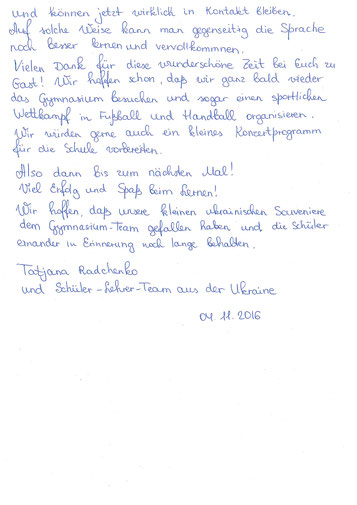 und können jetzt wirklich in Kontakt bleiben.
Auf solche Weise kann man gegenseitig die Sprache
noch besser lernen und vervollkommnen.
Vielen Dank für diese wunderschöne Zeit bei Euch zu
Gast! Wir hoffen schon, daß wir ganz bald wieder
das Gymnasium besuchen und sogar einen sportlichen
Wettkampf in Fußball und Handball organisieren.
Wir würden gerne auch ein kleines Konzertprogramm
für die Schule vorbereiten.
Also dann bis zum nächsten Mal!
Viel Erfolg und Spaß beim Lernen!
Wir hoffen, daß unsere kleinen ukrainischen Souveniere
dem Gymnasium-Team gefallen haben und die Schüler
einander in Erinnerung noch lange behalten.
Tatjana Radchenko
und Schüler-Lehrer-Team aus der Ukraine
04.11.2016